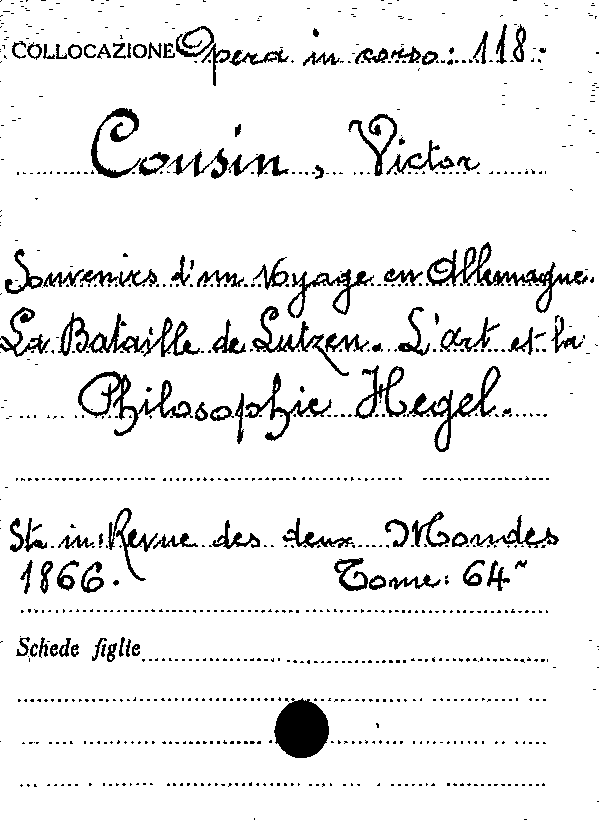 COLLOCAZIONE Opera in corso: 118.
Cousin, Victor
Souvenirs d'un Voyage en Allemagne.
La Bataille de Lutzen. L'art et la
Philosophie Hegel.
Sta in: Revue des deux Mondes
1866. Tome: 64~
Schede figlie